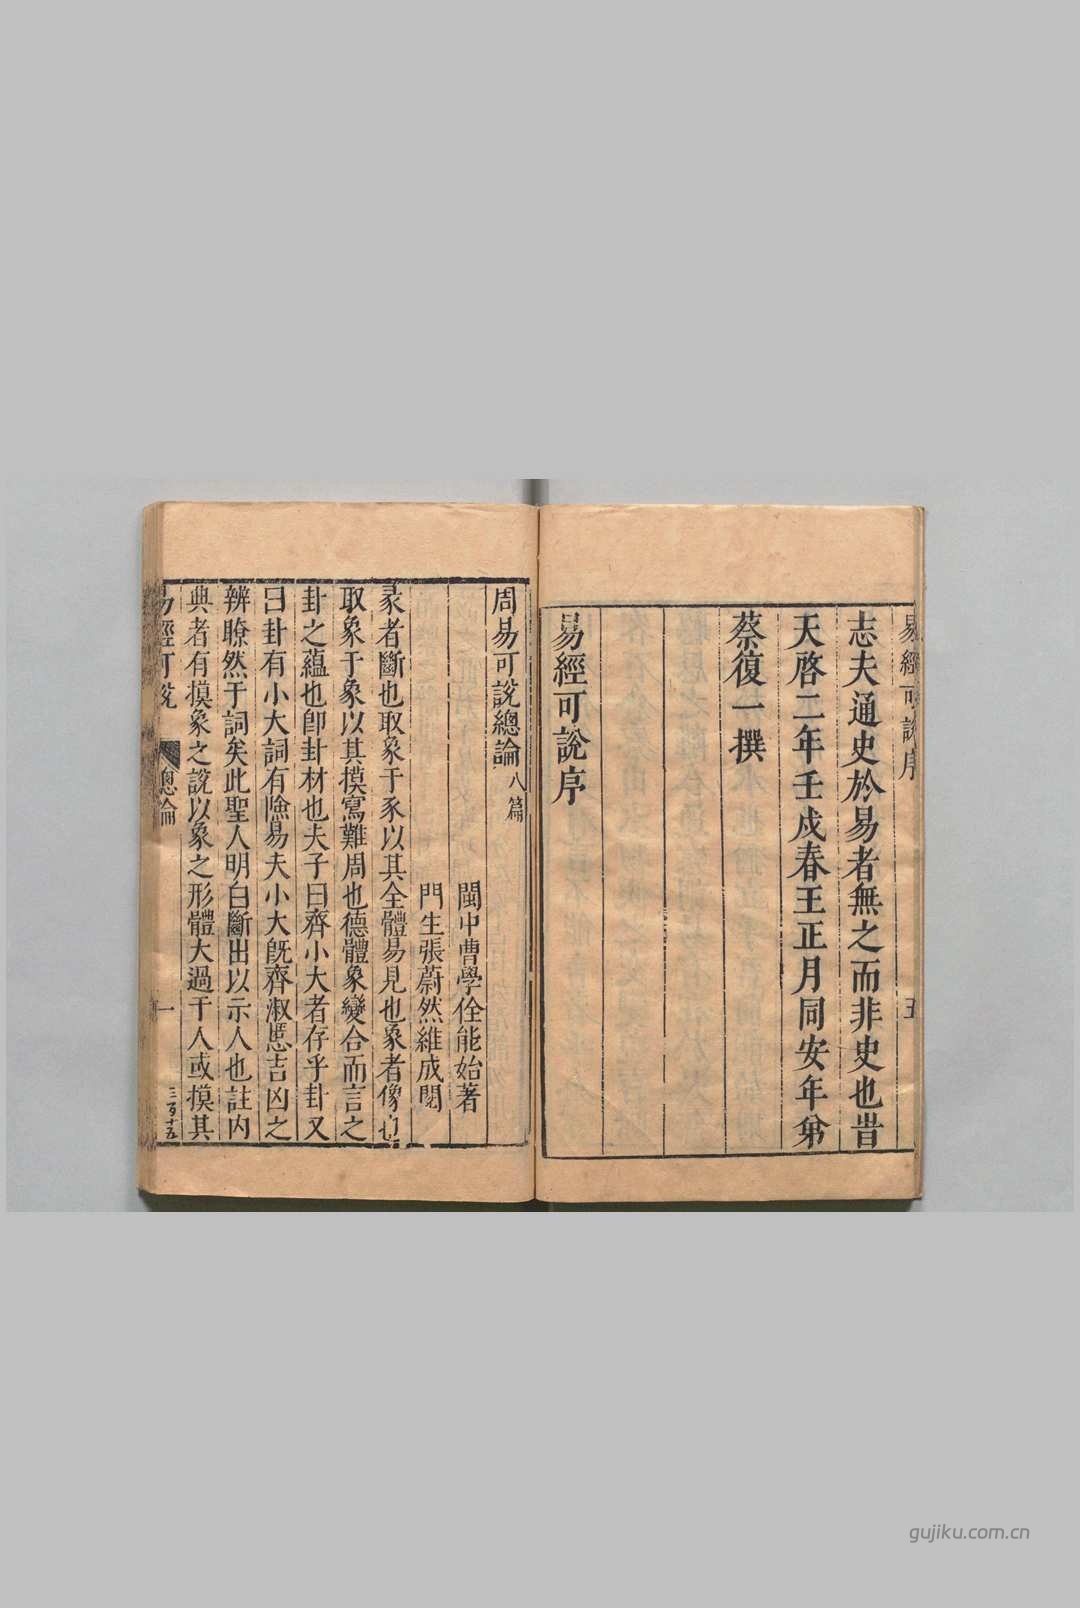 易經可說序
五
志夫通史於易者無之而非史也旹
天啓二年壬戌春王正月同安年弟
蔡復一撰
易經可說序
周易可說總論 八篇
閩中曹學佺能始著
門生張蔚然維成閱
彖者斷也取象于豕以其全體易見也象者像也
取象于象以其摸寫難周也德體象變合而言之
卦之蘊也卽卦材也夫子曰齊小大者存乎卦又
曰卦有小大詞有險易夫小大旣齊淑慝吉凶之
辨瞭然于詞矣此聖人明白斷出以示人也註內
典者有摸象之說以象之形體大過于人或摸其
易經可說
總論
一
三百十五
gujiku.com.cn